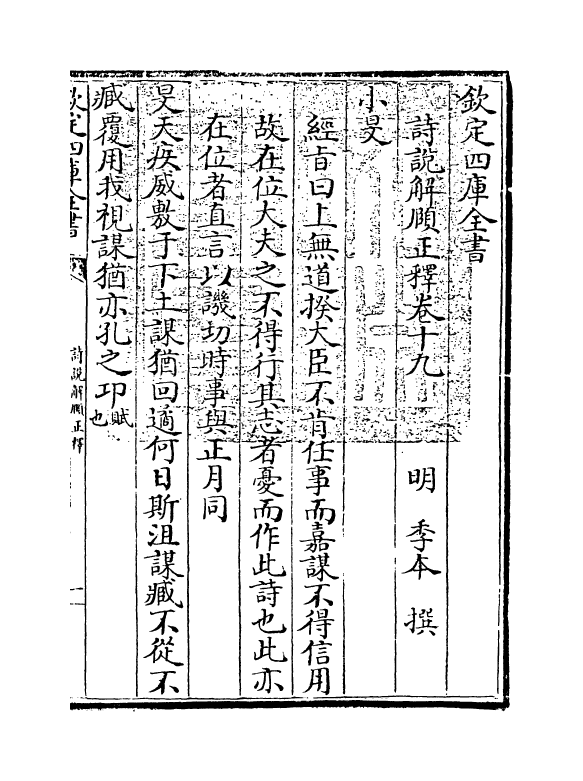 欽定四庫全書
詩說解頤正釋卷十九 明 季本 撰
小旻
經旨曰上無道揆大臣不肯任事而嘉謀不得信用
故在位大夫之不得行其志者憂而作此詩也此亦
在位者直言以譏切時事與正月同
旻天疾威敷于下土謀猶回遹何日斯沮謀臧不從不
臧覆用我視謀猶亦孔之邛賦也
欽定四庫全書
詩說解頤正釋
一